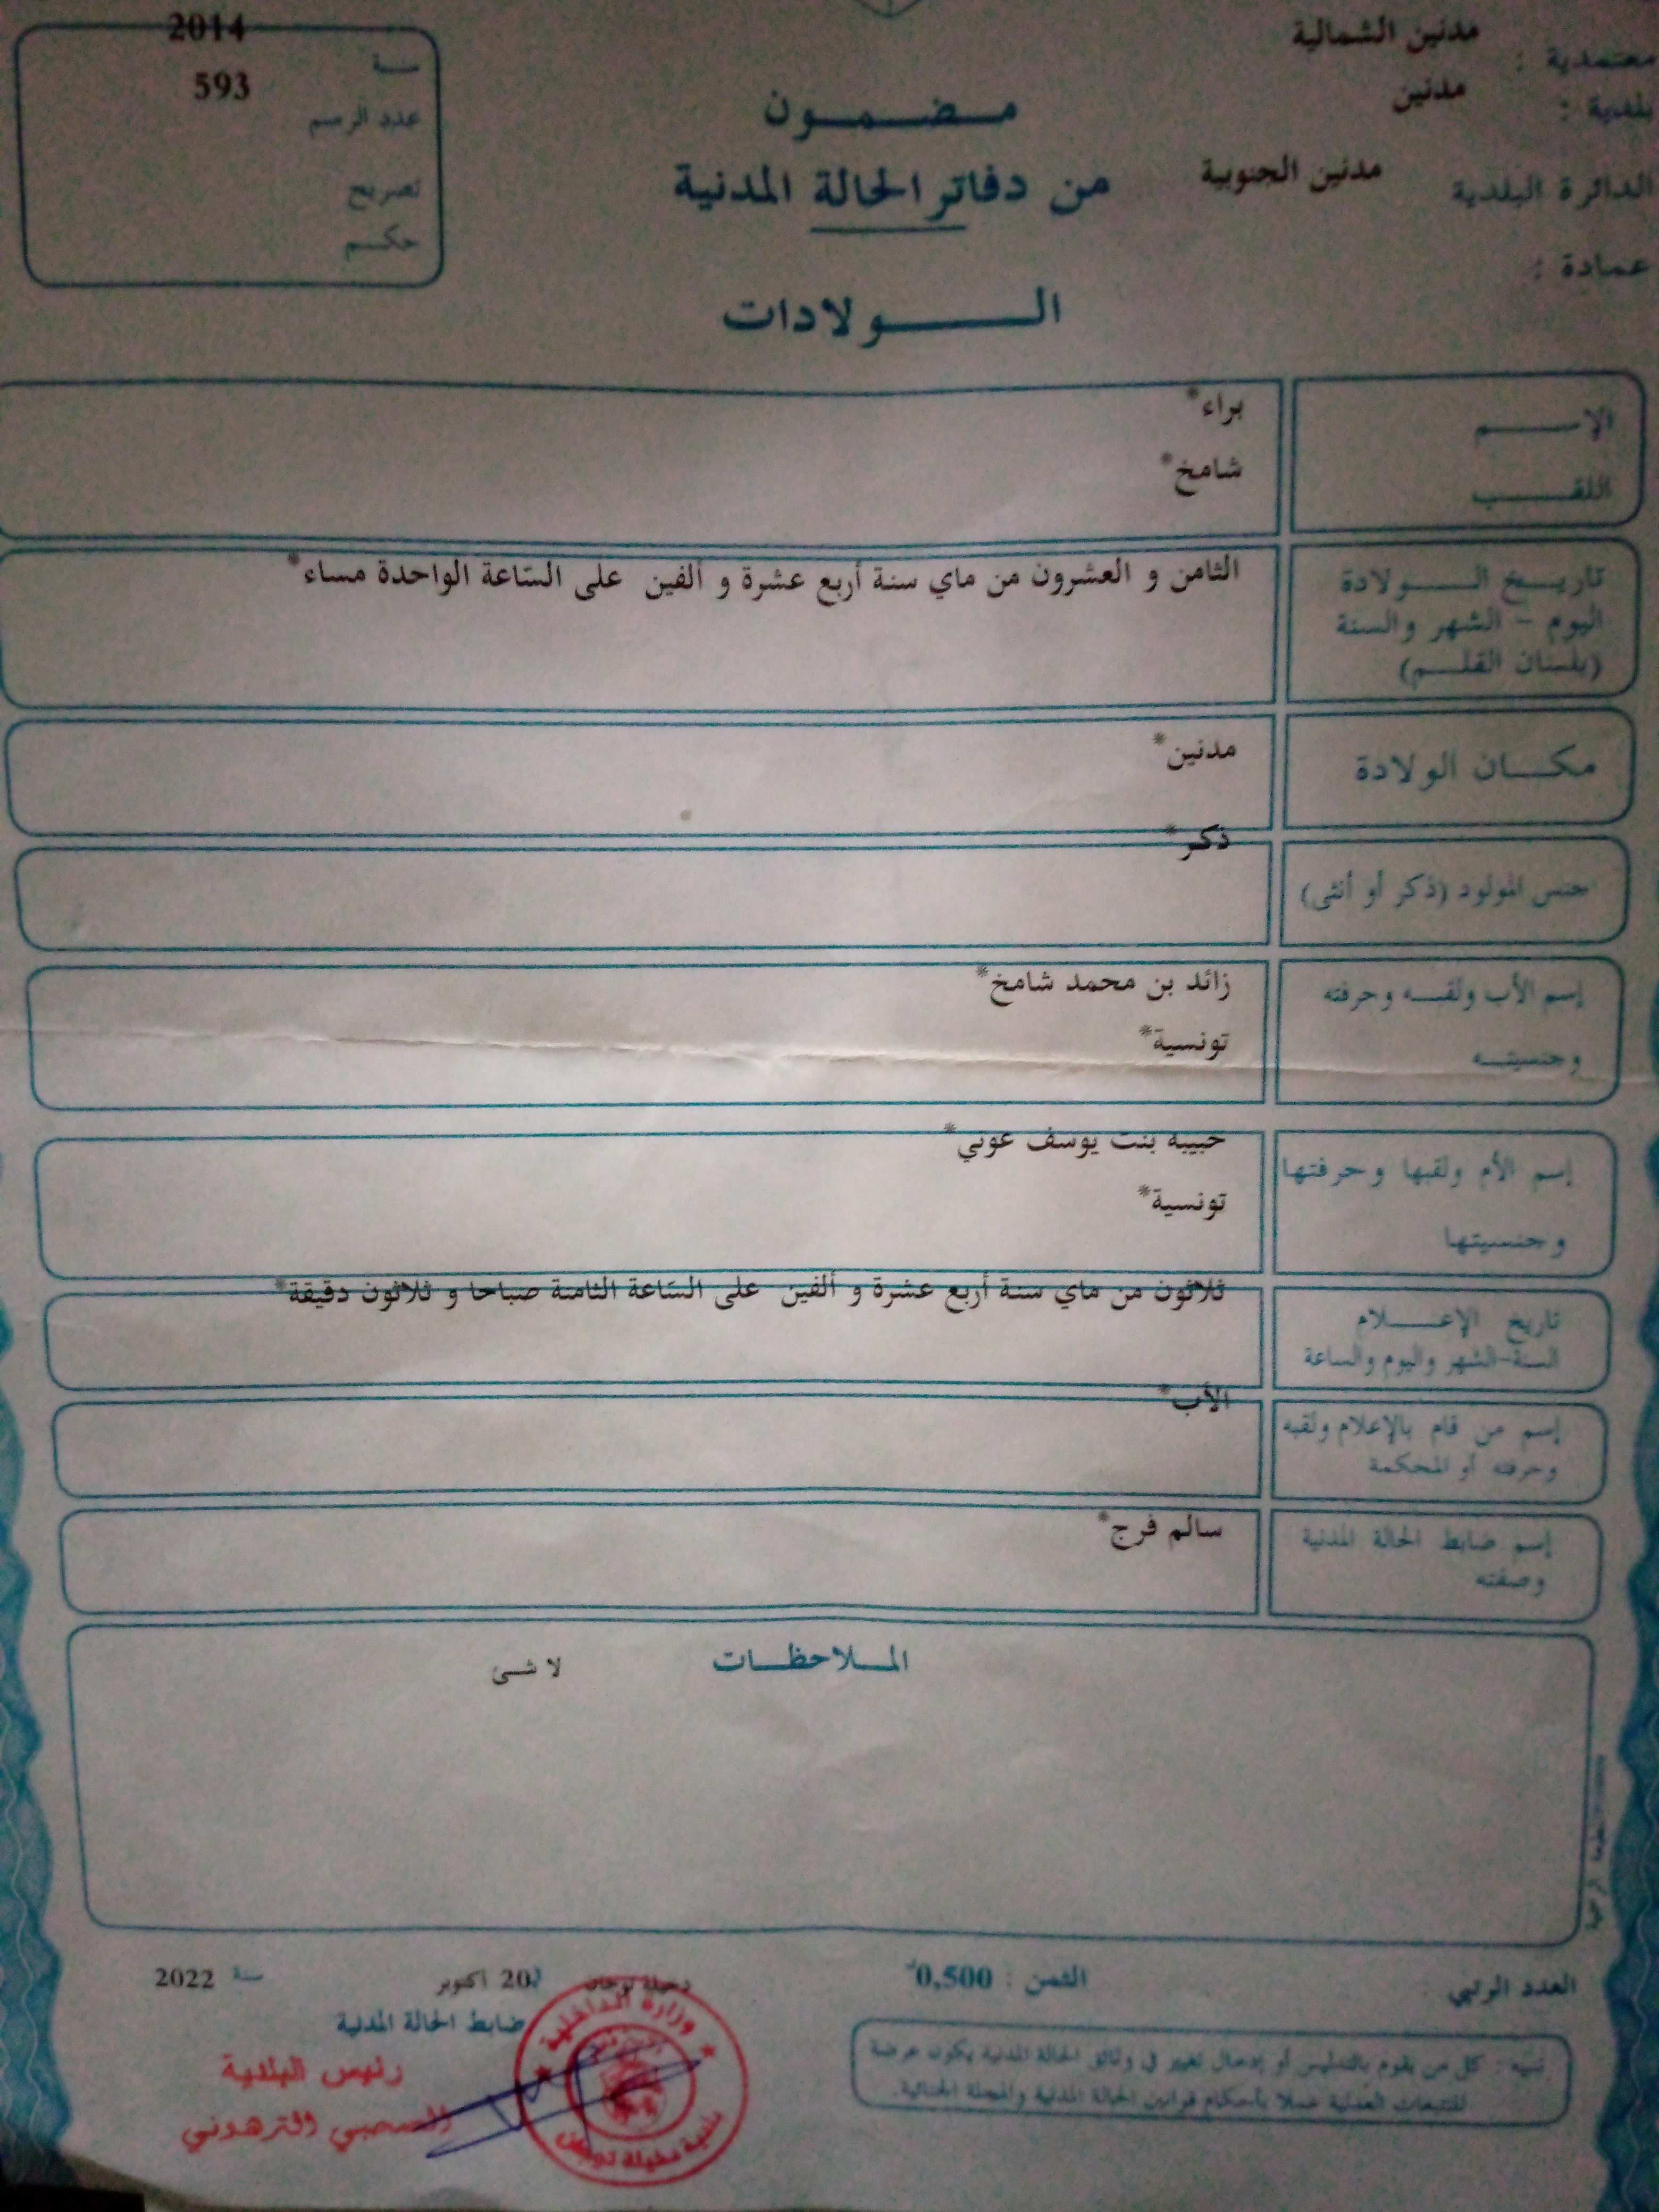 معتمدية : مدنين الشمالية
بلدية : مدنين
الدائرة البلدية مدنين الجنوبية
عمادة :
مضمون
من دفاتر الحالة المدنية
الولادات
2014
سنة
593
عدد الرسم
تصريح
حكم
الإسم براء*
اللقب شامخ*
تاريخ الولادة الثامن و العشرون من ماي سنة أربع عشرة و ألفين على الساعة الواحدة مساء*
اليوم - الشهر والسنة
(بلسان القلم)
مكان الولادة مدنين*
ذكر*
جنس المولود (ذكر أو أنثى)
إسم الأب ولقبه وحرفته زائد بن محمد شامخ*
وجنسيته تونسية*
حبيبة بنت يوسف عوني*
إسم الأم ولقبها وحرفتها
تونسية*
وجنسيتها
ثلاثون من ماي سنة أربع عشرة و ألفين على الساعة الثامنة صباحا و ثلاثون دقيقة*
تاريخ الإعلام
السنة-الشهر واليوم والساعة
الأب*
إسم من قام بالإعلام ولقبه
وحرفته أو المحكمة
إسم ضابط الحالة المدنية سالم فرج*
وصفته
الملاحظات لا شئ
العدد الرتبي الثمن : 0,500د
دخيلة توجان 20 اكتوبر سنة 2022
ضابط الحالة المدنية
رئيس البلدية
الصحبي الترهوني
وزارة الداخلية
بلدية دخيلة توجان
تنبيه : كل من يقوم بالتدليس أو إدخال تغيير في وثائق الحالة المدنية يكون عرضة
للتتبعات العدلية عملا بأحكام قوانين الحالة المدنية والمجلة الجنائية.